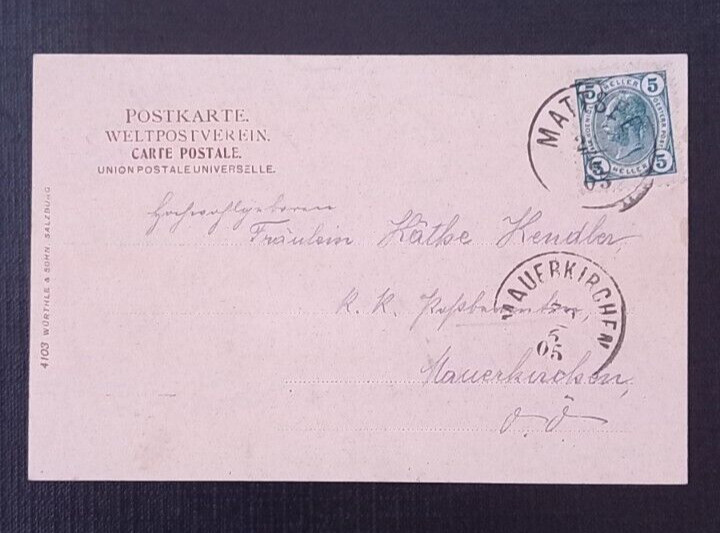 POSTKARTE.
WELTPOSTVEREIN.
CARTE POSTALE.
UNION POSTALE UNIVERSELLE.
5 HELLER 5
5 HELLER 5
MATTSEE
Hochwohlgeboren
Fräulein Käthe Kendler,
k. k. Postbeamtin,
Mauerkirchen,
O. Ö
MAUERKIRCHEN
5
05
4103 WÜRTHLE & SOHN, SALZBURG